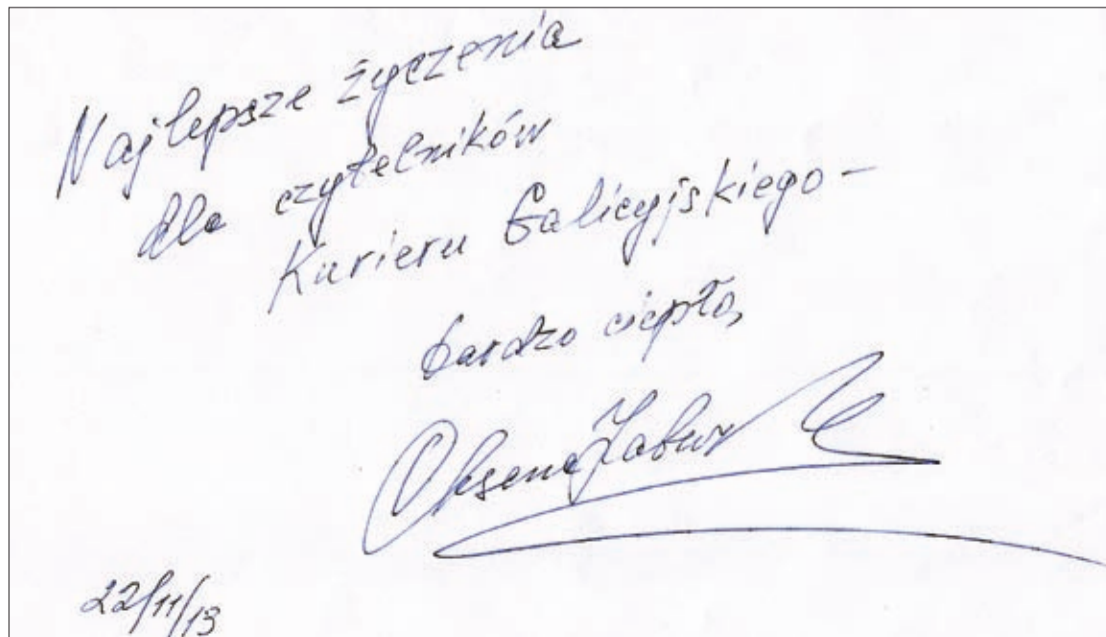 Najlepsze życzenia
dla czytelników
Kuriera Galicyjskiego –
bardzo ciepło,
Oksana Zabuz
22/11/13